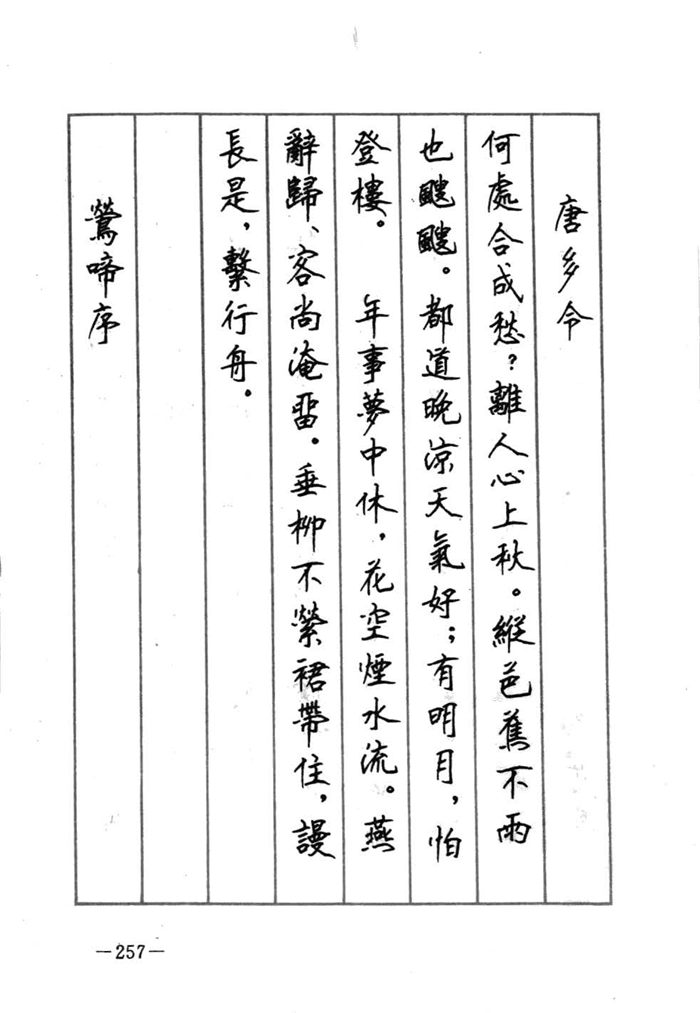 唐多令
何處合成愁？離人心上秋。縱芭蕉不雨
也颼颼。都道晚涼天氣好；有明月，怕
登樓。　年事夢中休，花空煙水流。燕
辭歸、客尚淹畱。垂柳不縈裙帶住，謾
長是，繫行舟。
鶯啼序
—257—